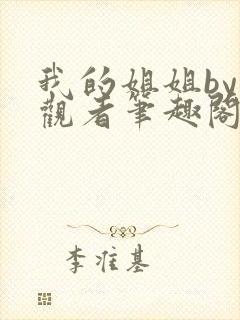 我的姐姐by
觀者筆趣閣
李准基